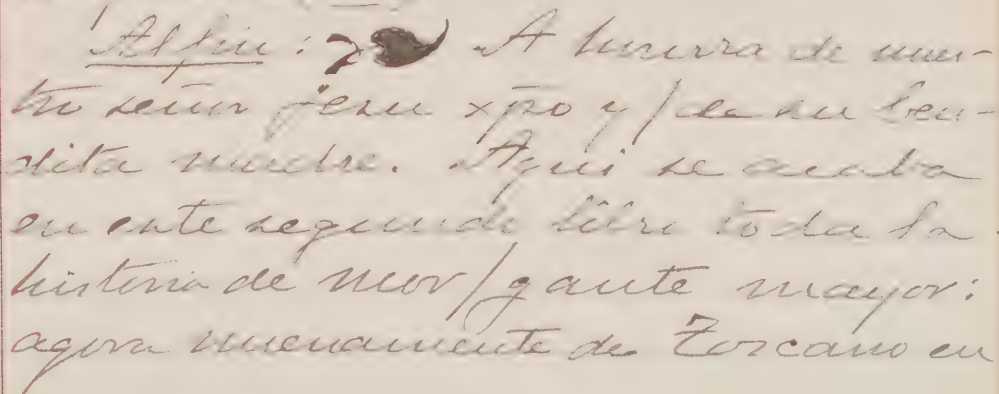 Al fin: A hnrra de nues-
tro señor jesu xpo y / de su ben-
dita madre. Aqui se acaba
en este segundo libro toda la
historia de mor/gante mayor:
agora nuevamente de Toscano en